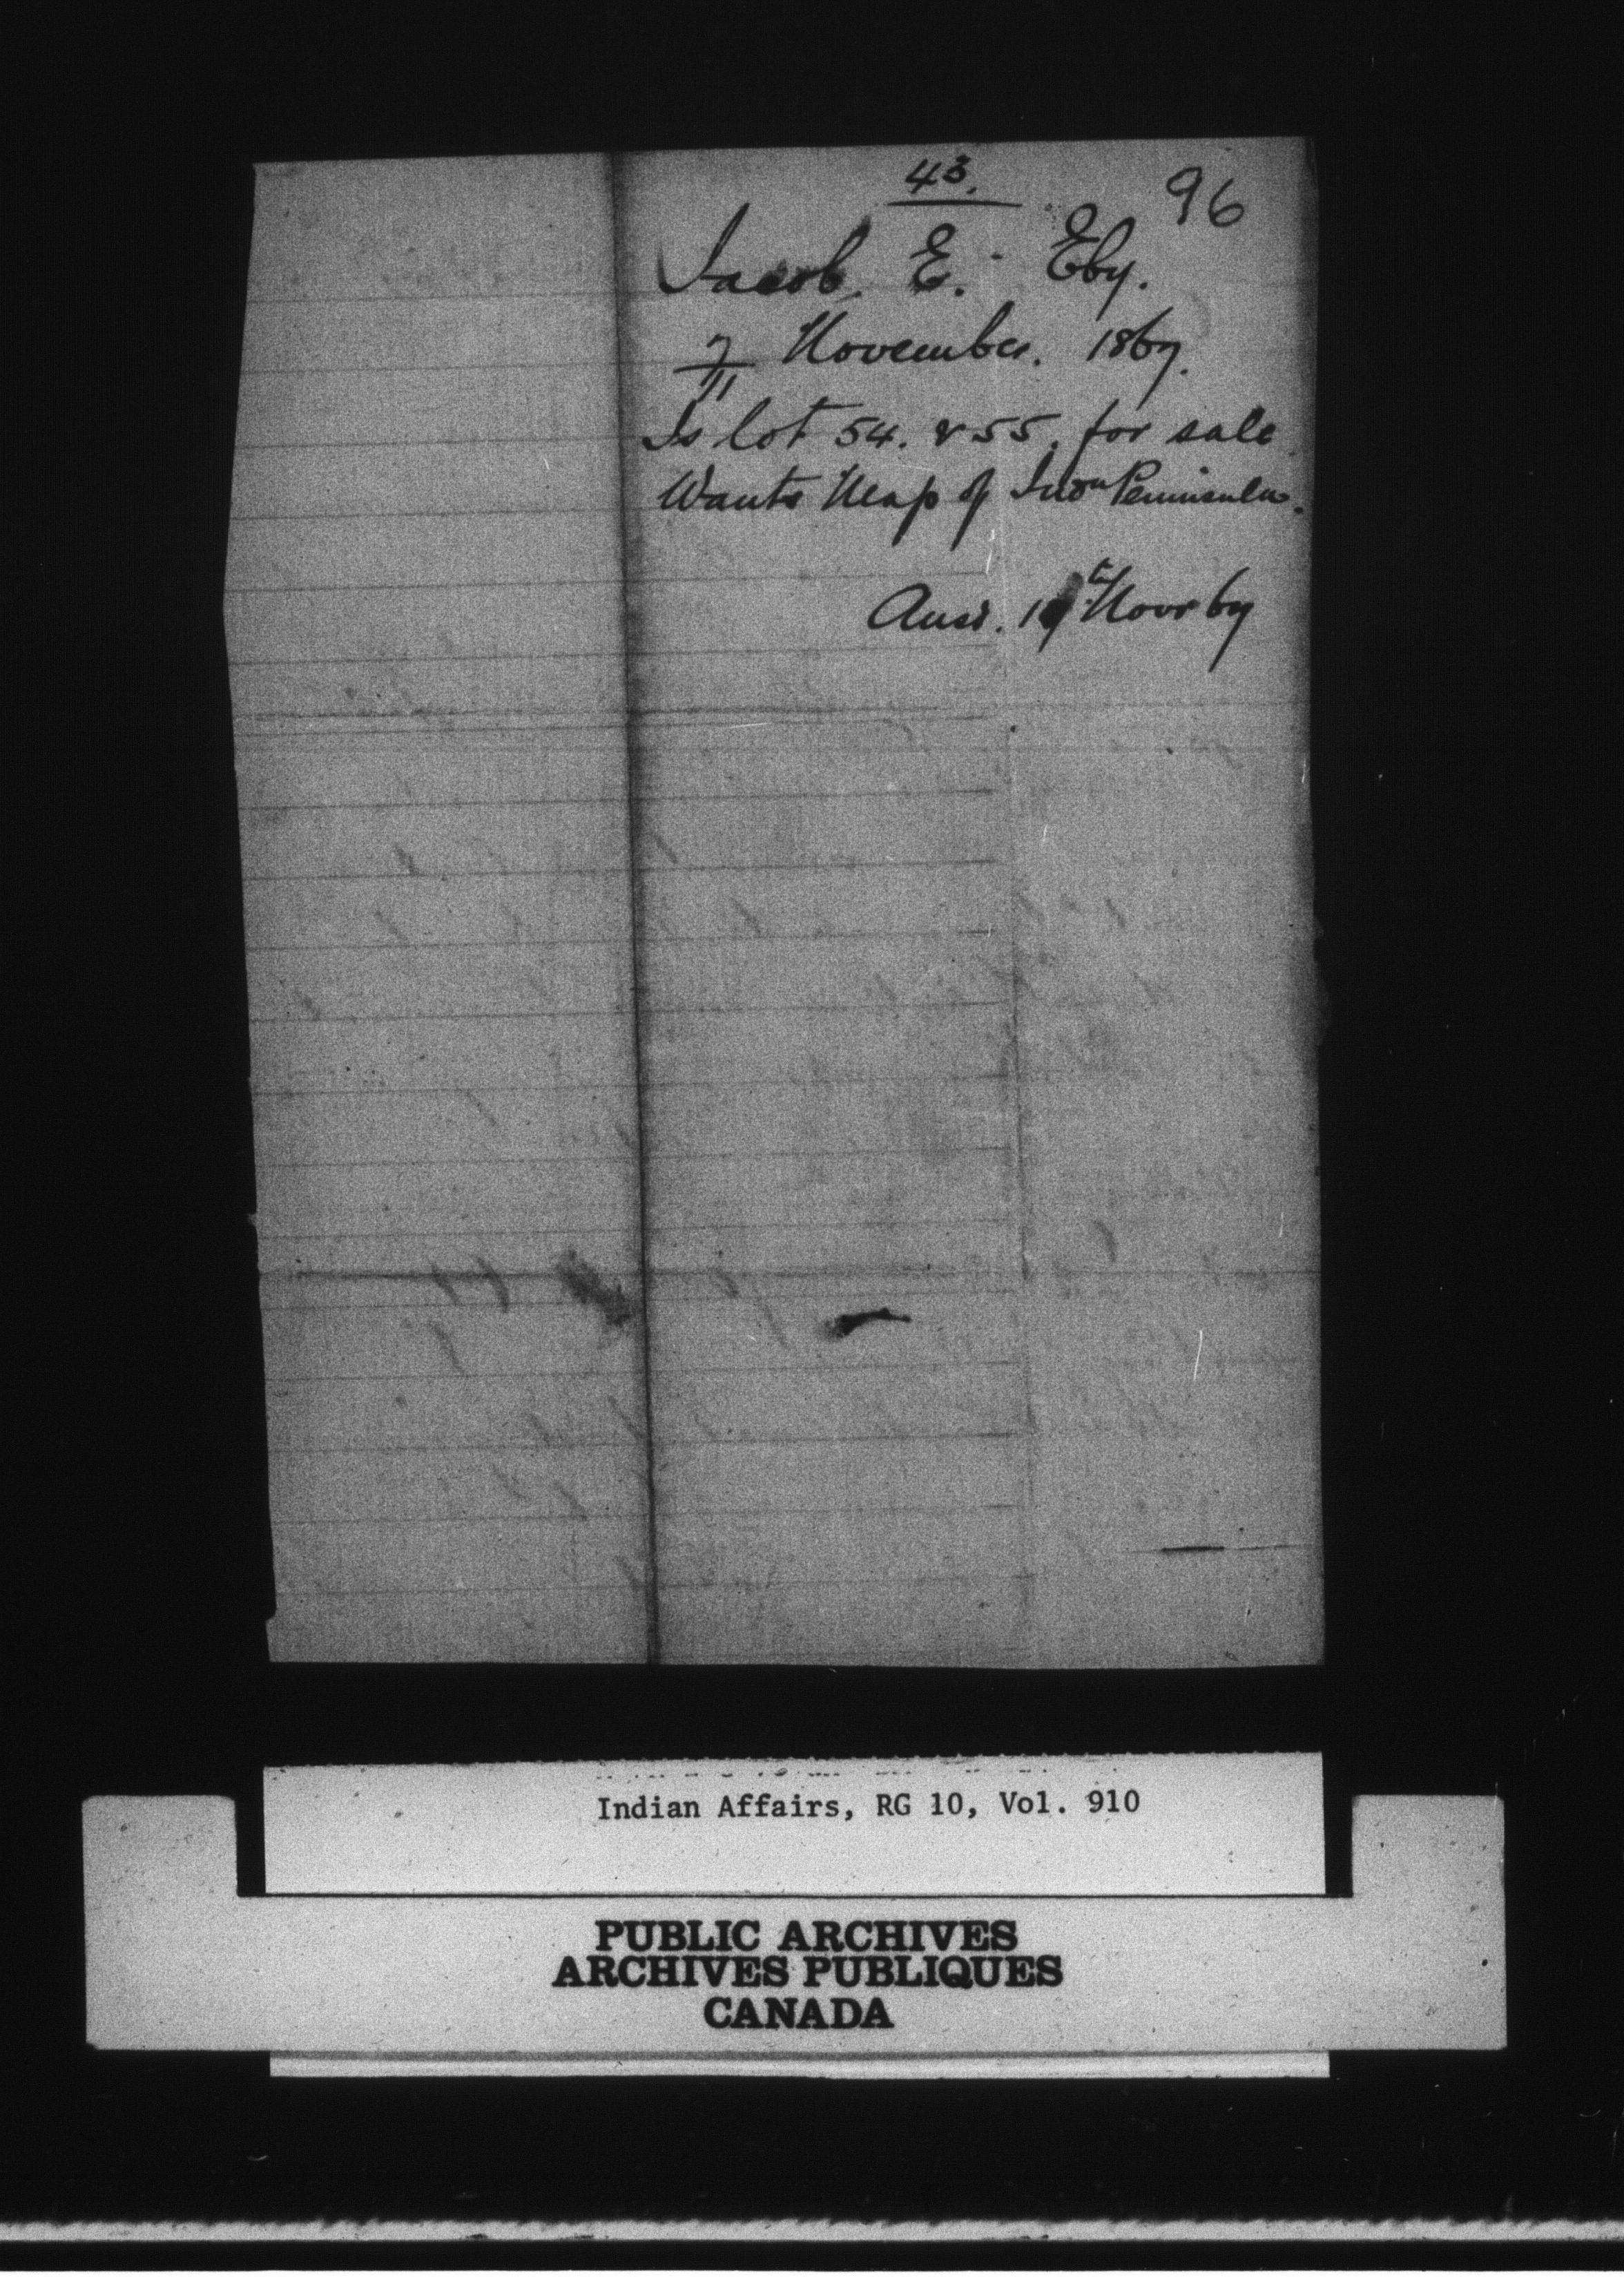 43.
96
Jacob. E. Eby.
7/11 November. 1867.
Is lot 54. & 55. for sale
Wants Map of Ind^n Peninsula.
Ansd. 19^th Novr 67
Indian Affairs, RG 10, Vol. 910
PUBLIC ARCHIVES
ARCHIVES PUBLIQUES
CANADA